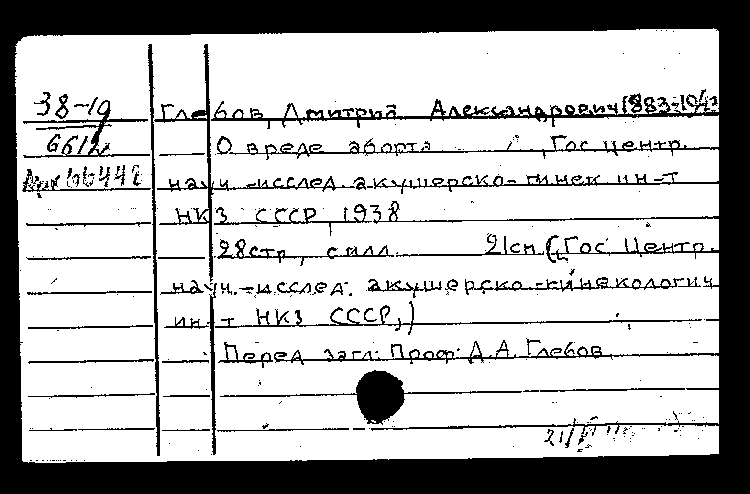 38-19 Глебов, Дмитрий Александрович 1883-194
661 О вреде аборта , Гос центр.
66442 науч.-исслед. акушерско-гинек ин-т
НКЗ СССР, 1938
28стр, с илл. 21см (Гос Центр.
науч.-исслед. акушерско-гинекологич
ин-т НКЗ СССР,)
Перед загл: Проф. Д.А. Глебов